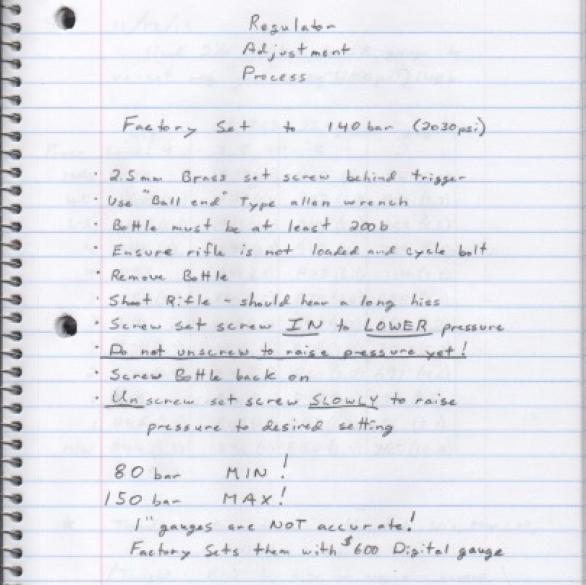 Regulator
Adjustment
Process
Factory Set to 140 bar (2030psi)
· 2.5mm Brass set screw behind trigger
· Use "Ball end" Type allen wrench
· Bottle must be at least 200b
· Ensure rifle is not loaded and cycle bolt
· Remove Bottle
· Shoot Rifle - should hear a long hiss
· Screw set screw IN to LOWER pressure
· Do not unscrew to raise pressure yet!
· Screw Bottle back on
· Unscrew set screw SLOWLY to raise
pressure to desired setting
80 bar MIN!
150 bar MAX!
1" gauges are NOT accurate!
Factory Sets them with $600 Digital gauge